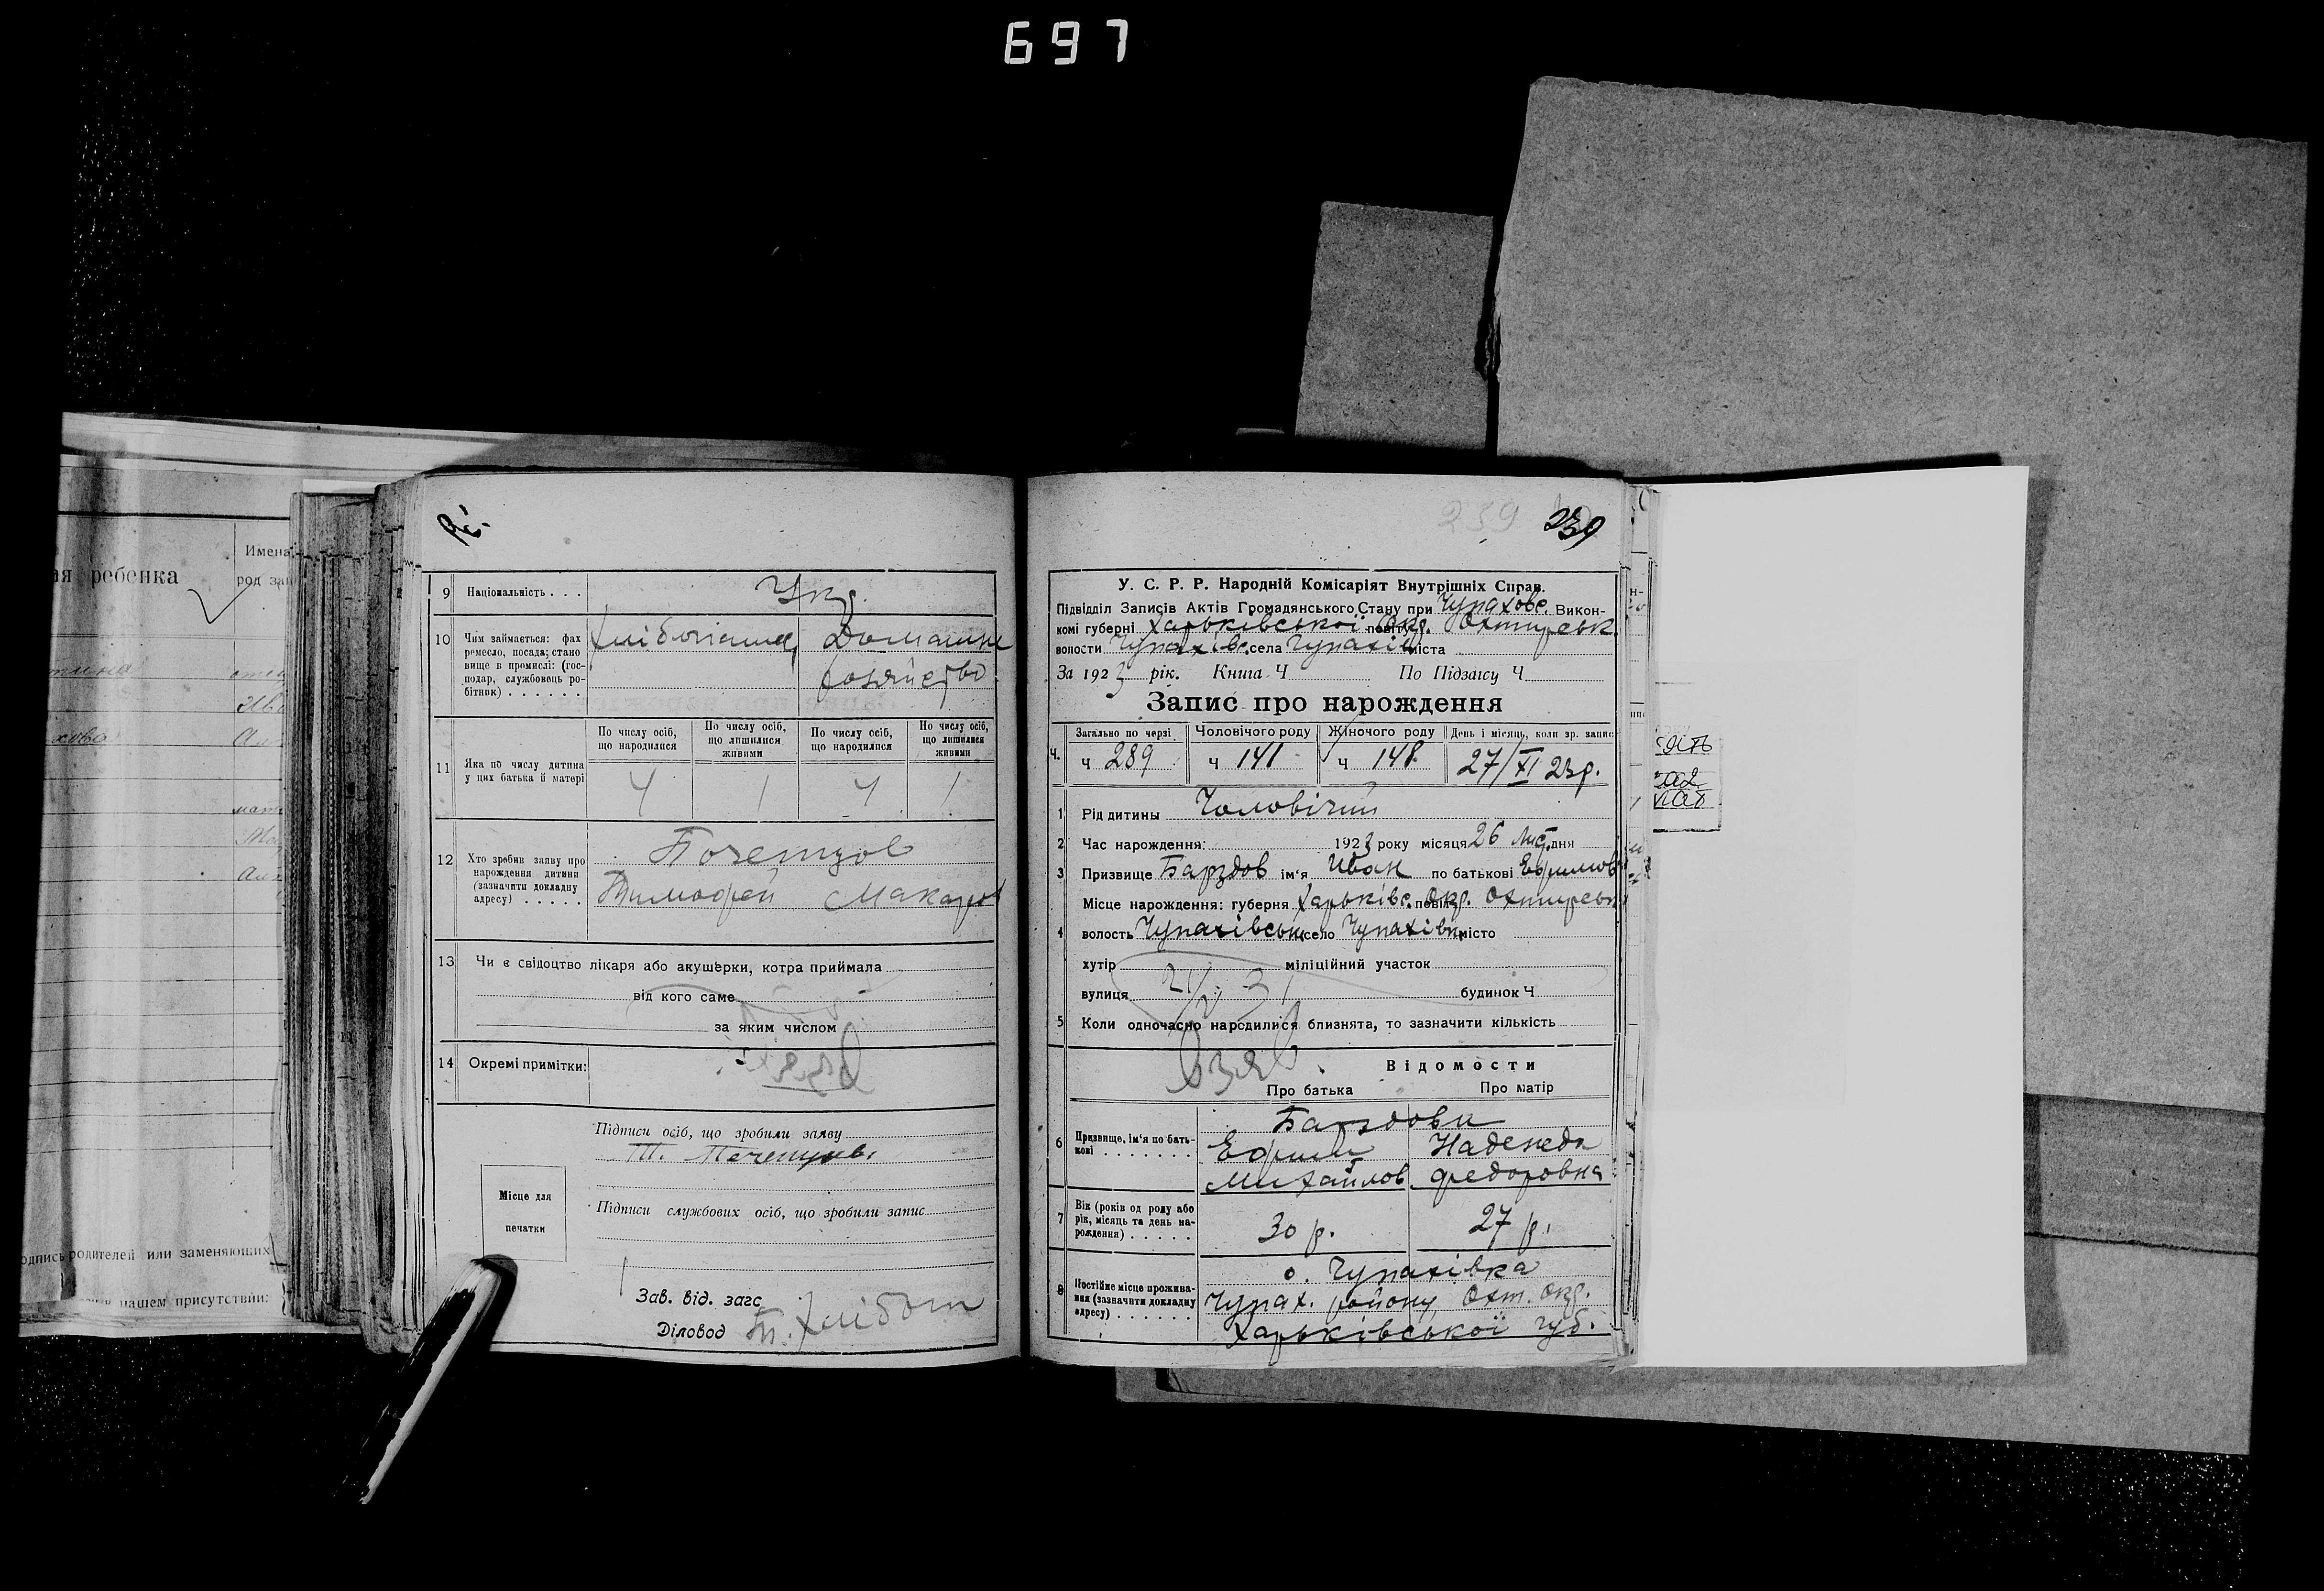 697
ребенка
Имена
род
одпись родителей или заменяющих
нашем присутствии:
9 Національність . . . Укр.
10 Чим займається: фах ремесло, посада; становище в промислі: (господар, службовець робітник) . . . . . .
Домашне
хозяйство
11 Яка по числу дитина у цих батька й матері
По числу осіб, що народилися
По числу осіб, що лишилися живими
По числу осіб, що народилися
По числу осіб, що лишилися живими
4 1 4 1
12 Хто зробив заяву про нарождення дитини (зазначити докладну адресу) . . . . .
Тимофей Макаров
13 Чи є свідоцтво лікаря або акушерки, котра приймала
від кого саме
за яким числом
14 Окремі примітки:
Підписи осіб, що зробили заяву
Місце для печатки
Підписи службових осіб, що зробили запис
Зав. від. загс
Діловод
239 239
У. С. Р. Р. Народній Комісаріят Внутрішніх Справ.
Підвідділ Записів Актів Громадянського Стану при Чупаховс. Викон-
комі губерні Харьківської повіту Окр. Охтирськ.
волости Чупахівс. села Чупахів міста
За 1923 рік. Книга Ч По Підзагсу Ч
Запис про нарождення
Загально по черзі Чоловічого роду Жіночого роду День і місяць, коли зр. запис
Ч. ч 289 ч 141 ч 148 27/XI 23 р.
1 Рід дитины Чоловічий
2 Час нарождення: 1923 року місяця 26 Лист. дня
3 Призвище Барздов ім'я Иван по батькові Ефимов
Місце нарождення: губерня Харьківс. повіт Окр. Охтирськ
4 волость Чупахівська село Чупахівка місто
хутір міліційний участок
вулиця будинок Ч
5 Коли одночасно народилися близнята, то зазначити кількість
Взяв
Відомости
Про батька Про матір
6 Призвище, ім'я по батькові . . . . . . . .
Барздови
Ефим Надежда
Михайлов. Федоровна
7 Вік (років од роду або рік, місяць та день нарождення) . . . . .
30 р. 27 р.
8 Постійне місце проживання (зазначити докладну адресу) . . . . . .
с. Чупахівка
Чупах. району Охт. Окр.
Харьківської губ.